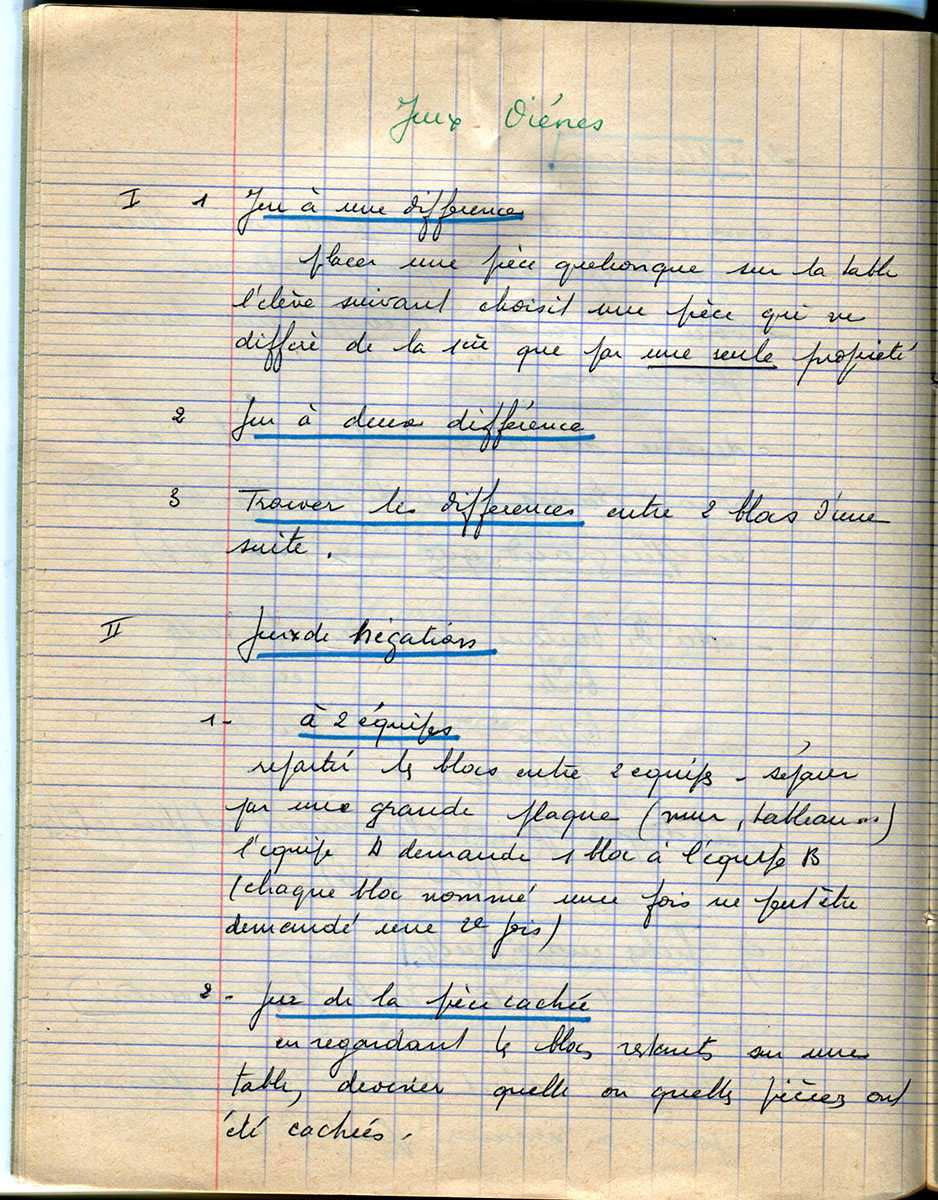 Jeux Diénes
I 1 Jeu à une différence
placer une pièce quelconque sur la table
l'élève suivant choisit une pièce qui ne
diffère de la 1ère que par une seule propriété
2 Jeu à deux différence
3 Trouver les différences entre 2 blocs d'une
suite.
II Jeux de Négations
1- à 2 équipes
répartir les blocs entre 2 équipes - séparer
par une grande plaque (mur, tableau...)
l'équipe A demande 1 bloc à l'équipe B
(chaque bloc nommé une fois ne peut être
demandé une 2e fois)
2- Jeux de la pièce cachée
en regardant les blocs restants sur une
table, deviner quelle ou quelles pièces ont
été cachées.